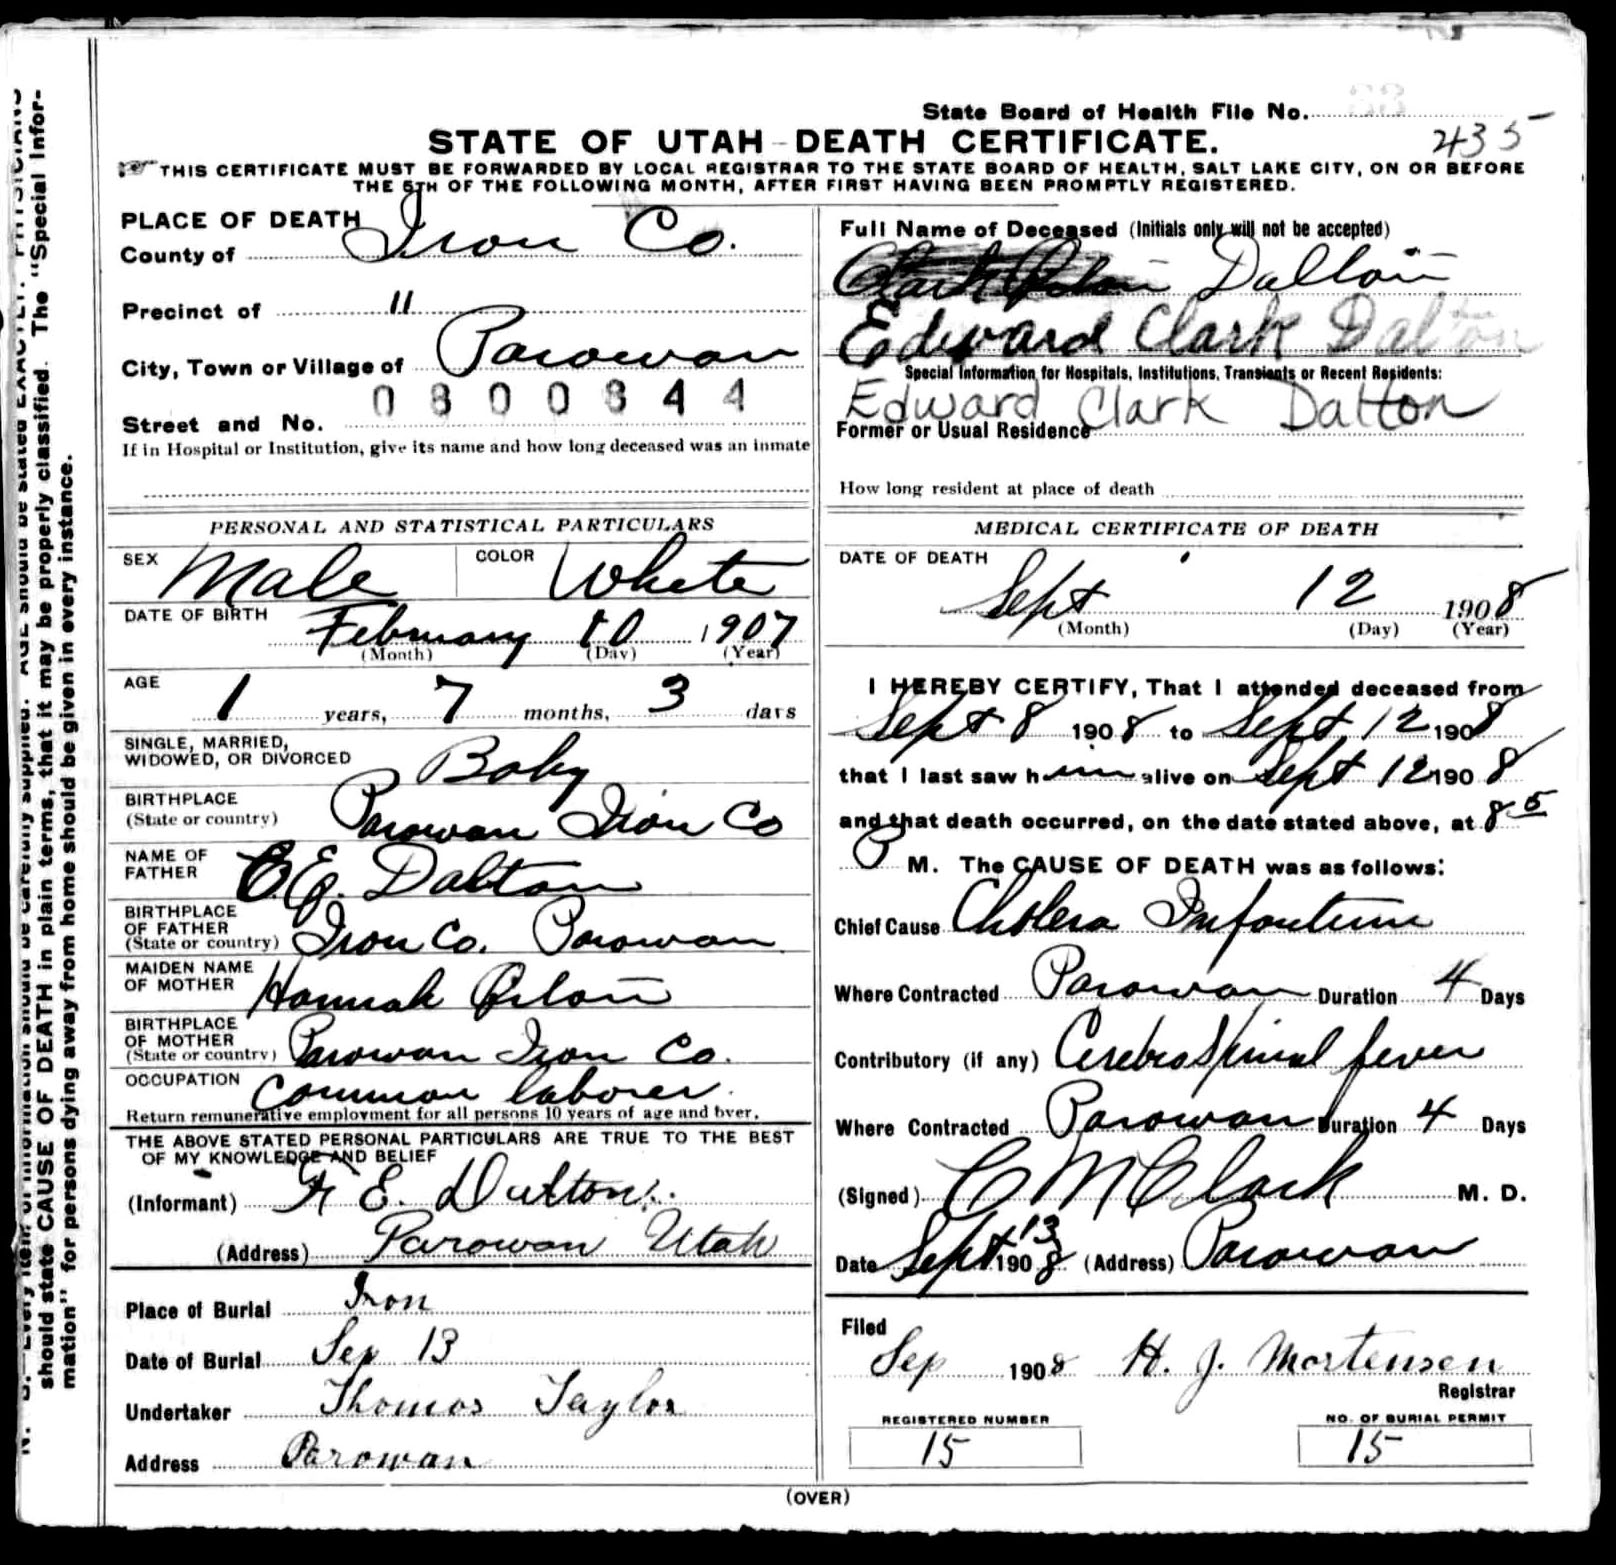 State Board of Health File No. 33
435
STATE OF UTAH - DEATH CERTIFICATE.
THIS CERTIFICATE MUST BE FORWARDED BY LOCAL REGISTRAR TO THE STATE BOARD OF HEALTH, SALT LAKE CITY, ON OR BEFORE
THE 5TH OF THE FOLLOWING MONTH, AFTER FIRST HAVING BEEN PROMPTLY REGISTERED.
PLACE OF DEATH
County of Iron Co.
Precinct of "
City, Town or Village of Parowan
0800344
Street and No.
If in Hospital or Institution, give its name and how long deceased was an inmate
Full Name of Deceased (Initials only will not be accepted)
Clark Dalton
Edward Clark Dalton
Special Information for Hospitals, Institutions, Transients or Recent Residents:
Edward Clark Dalton
Former or Usual Residence
How long resident at place of death
PERSONAL AND STATISTICAL PARTICULARS
SEX Male COLOR White
DATE OF BIRTH February 10 1907
(Month) (Day) (Year)
AGE 1 years, 7 months, 3 days
SINGLE, MARRIED,
WIDOWED, OR DIVORCED Baby
BIRTHPLACE
(State or country) Parowan Iron Co
NAME OF
FATHER E. Dalton
BIRTHPLACE
OF FATHER
(State or country) Iron Co. Parowan
MAIDEN NAME
OF MOTHER Hannah
BIRTHPLACE
OF MOTHER
(State or country) Parowan Iron Co.
OCCUPATION Common laborer.
Return remunerative employment for all persons 10 years of age and over.
THE ABOVE STATED PERSONAL PARTICULARS ARE TRUE TO THE BEST
OF MY KNOWLEDGE AND BELIEF
(Informant) E. Dalton.
(Address) Parowan Utah
Place of Burial Iron
Date of Burial Sep 13
Undertaker Thomas Taylor
Address Parowan
MEDICAL CERTIFICATE OF DEATH
DATE OF DEATH
Sept 12 1908
(Month) (Day) (Year)
I HEREBY CERTIFY, That I attended deceased from
Sept 8 1908 to Sept 12 1908
that I last saw him alive on Sept 12 1908
and that death occurred, on the date stated above, at 8 5
P M. The CAUSE OF DEATH was as follows:
Chief Cause Cholera Infantum
Where Contracted Parowan Duration 4 Days
Contributory (if any) Cerebro Spinal fever
Where Contracted Parowan Duration 4 Days
(Signed) C M Clark M. D.
Date Sept 13 1908 (Address) Parowan
Filed
Sep 1908 H. J. Mortensen
Registrar
REGISTERED NUMBER
15
NO. OF BURIAL PERMIT
15
(OVER)
should state CAUSE OF DEATH in plain terms, that it may be properly classified. The "Special Infor-
mation" for persons dying away from home should be given in every instance.